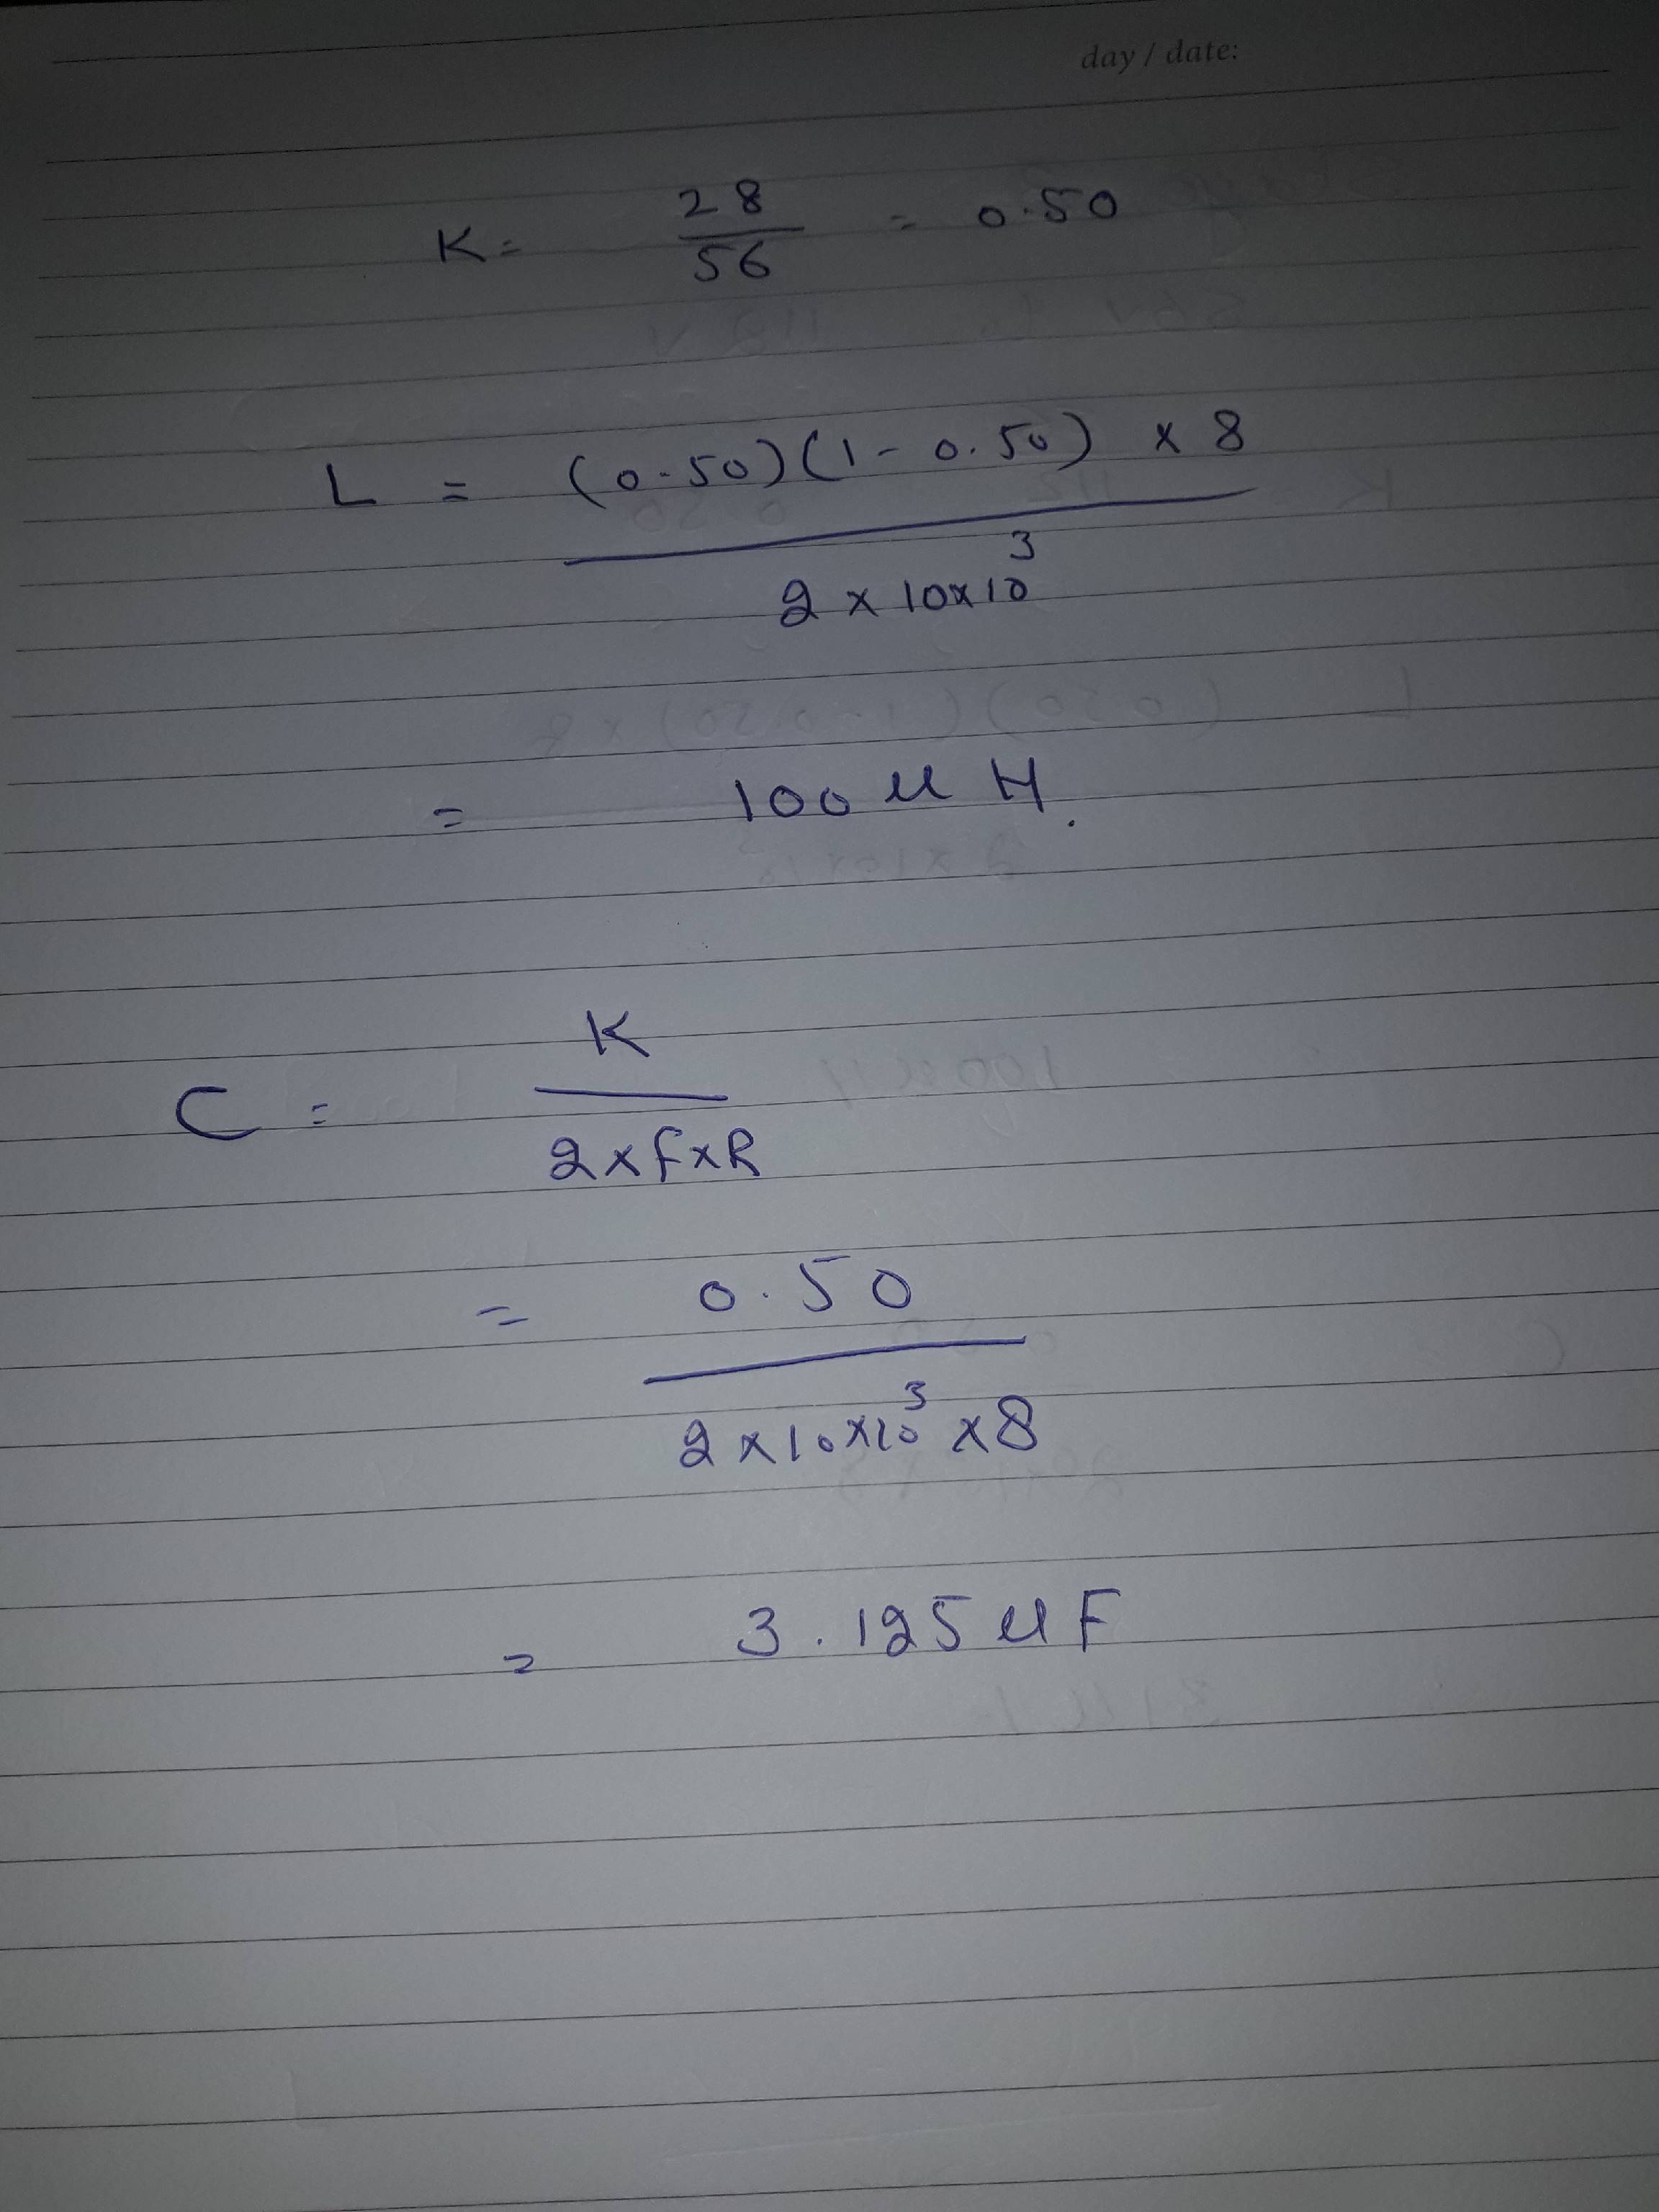 day / date:
K = 28/56 = 0.50
L = (0.50)(1 - 0.50) x 8
2 x 10x10³
= 100 µ H.
C = K
2xfxR
= 0.50
2 x 10x10³ x8
= 3.125 µ F